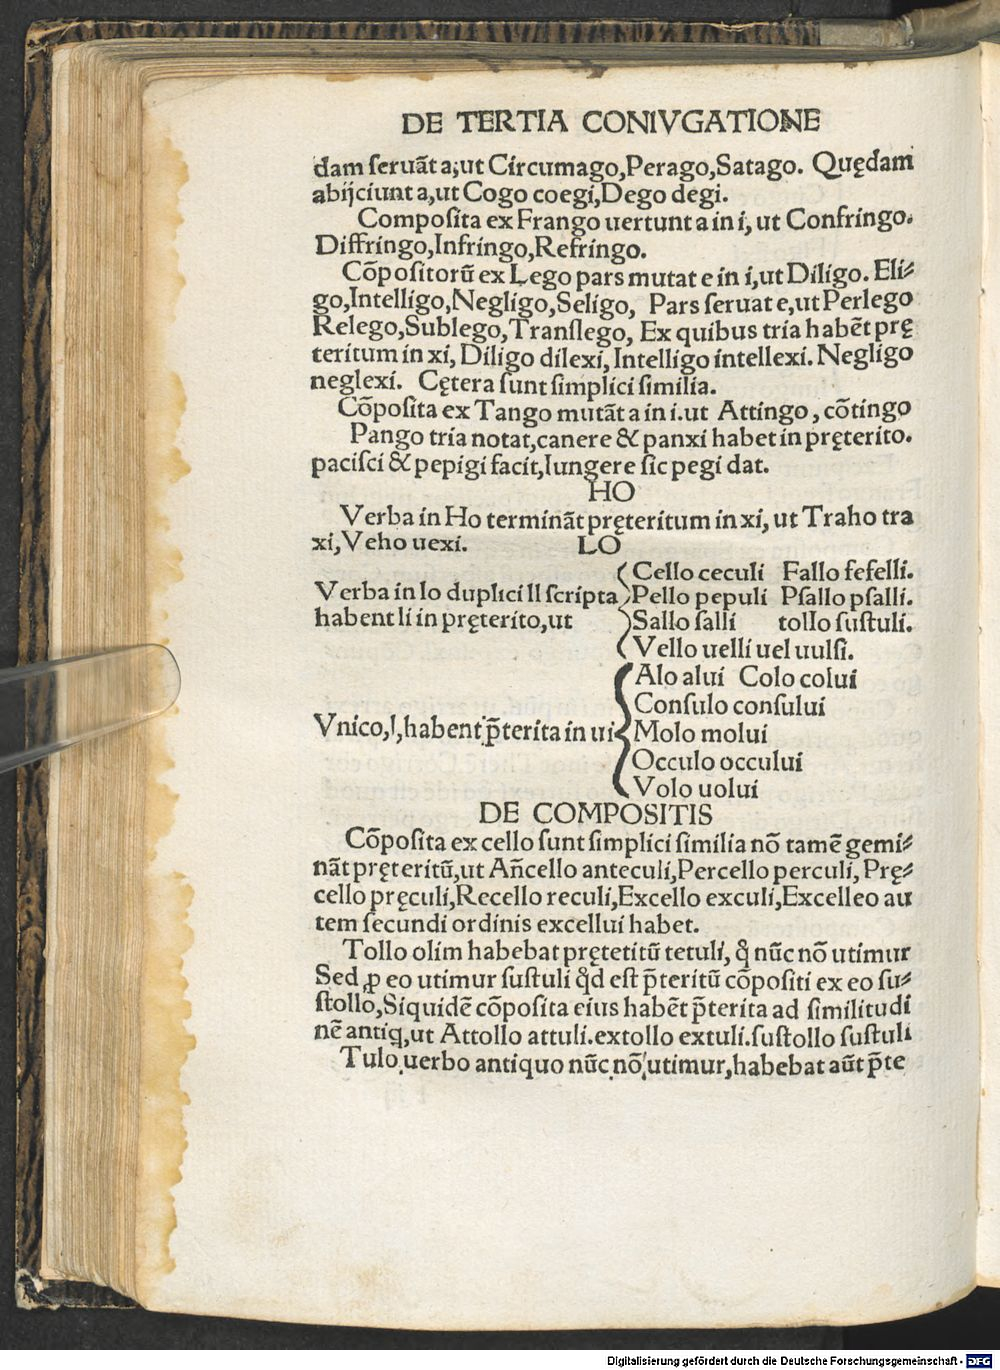 DE TERTIA CONIVGATIONE
dam ſeruãt a;ut Circumago,Perago,Satago. Quędam
abijciunt a,ut Cogo coegi,Dego degi.
Compoſita ex Frango uertunt a in i, ut Confringo.
Diffringo,Infringo,Refringo.
Cõpoſitorũ ex Lego pars mutat e in i,ut Diligo. Eli⸗
go,Intelligo,Negligo,Seligo, Pars ſeruat e,ut Perlego
Relego,Sublego,Tranſlego, Ex quibus tria habẽt prę
teritum in xi, Diligo dilexi, Intelligo intellexi. Negligo
neglexi. Cętera ſunt ſimplici ſimilia.
Cõpoſita ex Tango mutãt a in i.ut Attingo, cõtingo
Pango tria notat,canere & panxi habet in pręterito.
paciſci & pepigi facit,Iungere ſic pegi dat.
HO
Verba in Ho terminãt pręteritum in xi, ut Traho tra
xi,Veho uexi. LO
Cello ceculi Fallo fefelli.
Verba in lo duplici ll ſcripta Pello pepuli Pſallo pſalli.
habent li in pręterito,ut Sallo ſalli tollo ſuſtuli.
Vello uelli uel uulſi.
Alo alui Colo colui
Conſulo conſului
Vnico,l,habent p̃terita in ui Molo molui
Occulo occului
Volo uolui
DE COMPOSITIS
Cõpoſita ex cello ſunt ſimplici ſimilia nõ tamẽ gemi⸗
nãt pręteritũ,ut Añcello anteculi,Percello perculi, Prę⸗
cello pręculi,Recello reculi,Excello exculi,Excelleo au
tem ſecundi ordinis excellui habet.
Tollo olim habebat prętetitũ tetuli, q̃ nũc nõ utimur
Sed ꝓ eo utimur ſuſtuli qd̃ eſt p̃teritũ cõpoſiti ex eo ſu⸗
ſtollo,Siquidẽ cõpoſita eius habẽt p̃terita ad ſimilitudi
nẽ antiq,ut Attollo attuli.extollo extuli.ſuſtollo ſuſtuli
Tulo uerbo antiquo nũc nõ utimur,habebat aũt p̃te
Digitalisierung gefördert durch die Deutsche Forschungsgemeinschaft - DFG